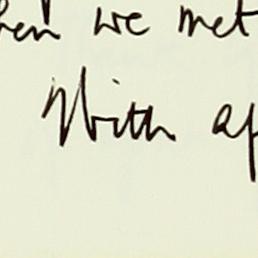 hen we met
With ap